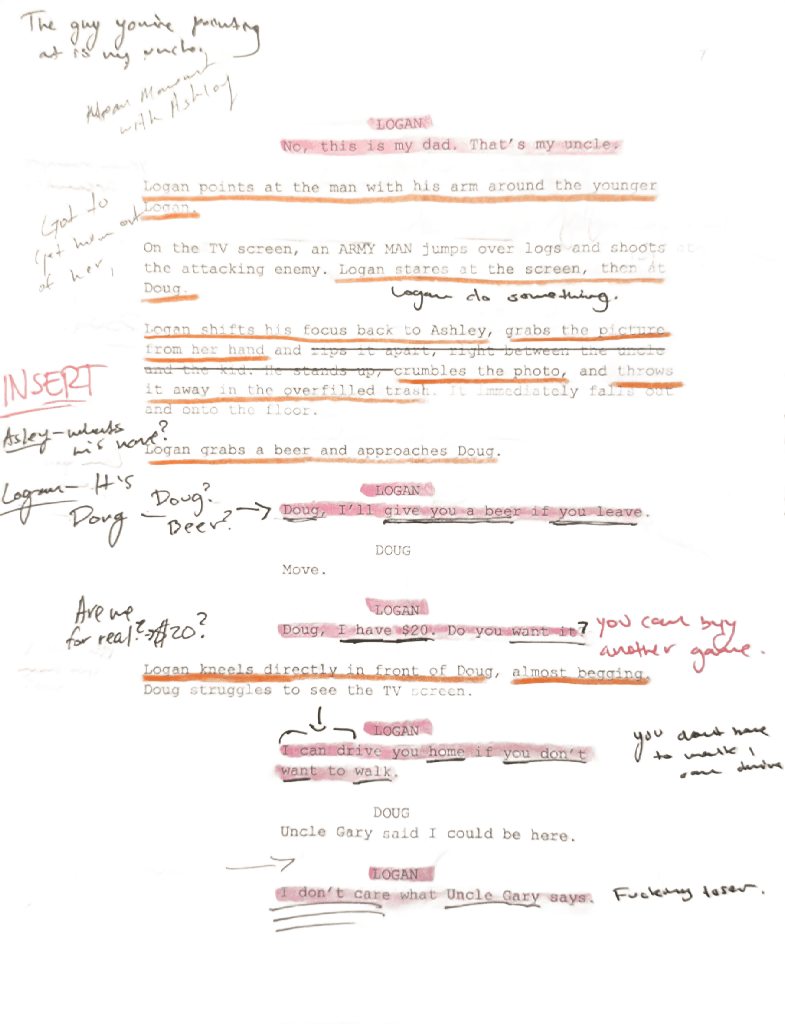 The guy you're pointing
at is my uncle.
Mean Moment
with Ashley
LOGAN
No, this is my dad. That's my uncle.
Logan points at the man with his arm around the younger
Logan.
Got to
get him out
of her,
On the TV screen, an ARMY MAN jumps over logs and shoots at
the attacking enemy. Logan stares at the screen, then at
Doug.
Logan do something.
Logan shifts his focus back to Ashley, grabs the picture
from her hand and rips it apart, right between the uncle
and the kid. He stands up, crumbles the photo, and throws
it away in the overfilled trash. It immediately falls out
and onto the floor.
INSERT
Asley - whats
his name?
Logan grabs a beer and approaches Doug.
Logan - It's
Doug - Doug?
Beer? →
LOGAN
Doug, I'll give you a beer if you leave.
DOUG
Move.
Are we
for real? → $20?
LOGAN
Doug, I have $20. Do you want it?
you can buy
another game.
Logan kneels directly in front of Doug, almost begging.
Doug struggles to see the TV screen.
LOGAN
I can drive you home if you don't
want to walk.
you dont have
to walk I
can drive
DOUG
Uncle Gary said I could be here.
LOGAN
I don't care what Uncle Gary says.
Fucking loser.